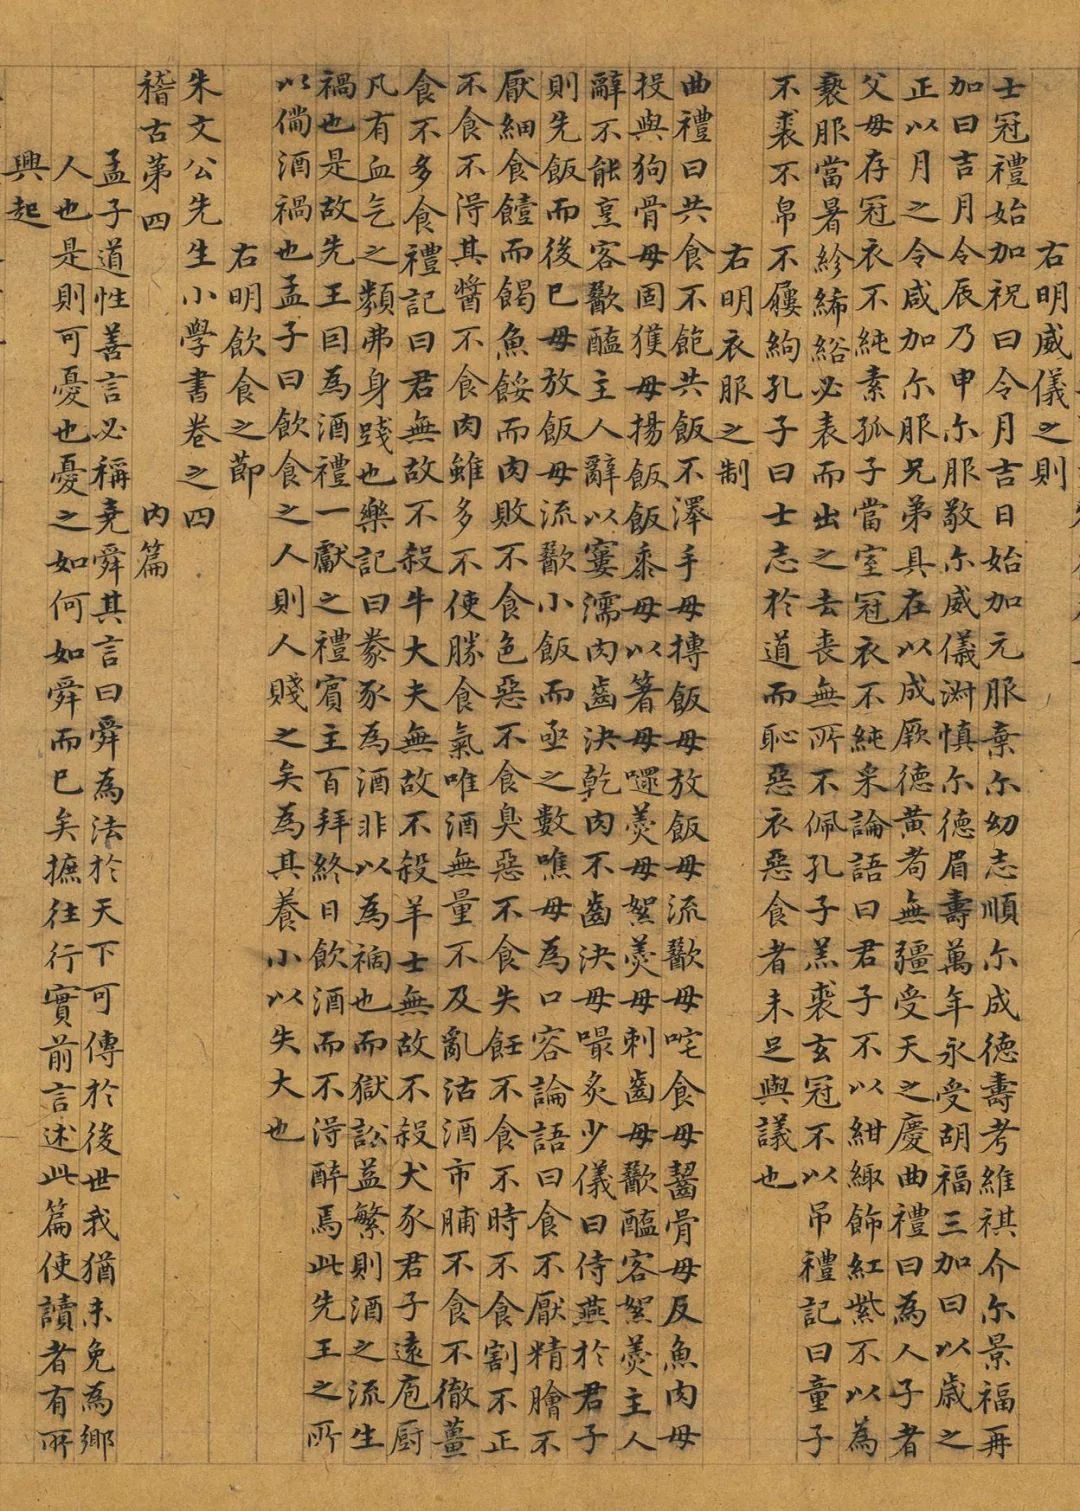 右明威儀之則
士冠禮始加祝曰令月吉日始加元服棄尔幼志順尔成德壽考維祺介尔景福再
加曰吉月令辰乃申尔服敬尔威儀淑慎尔德眉壽萬年永受胡福三加曰以歲之
正以月之令咸加尔服兄弟具在以成厥德黃耇無疆受天之慶曲禮曰為人子者
父母存冠衣不純素孤子當室冠衣不純采論語曰君子不以紺緅飾紅紫不以為
褻服當暑袗絺綌必表而出之去喪無所不佩孔子羔裘玄冠不以吊禮記曰童子
不裘不帛不屨絇孔子曰士志於道而恥惡衣惡食者未足與議也
右明衣服之制
曲禮曰共食不飽共飯不澤手毋摶飯毋放飯毋流歠毋咤食毋齧骨毋反魚肉毋
投與狗骨毋固獲毋揚飯飯黍毋以箸毋嚃羹毋絮羹毋刺齒毋歠醢客絮羹主人
辭不能烹客歠醢主人辭以窶濡肉齒決乾肉不齒決毋嘬炙少儀曰侍燕於君子
則先飯而後已毋放飯毋流歠小飯而亟之數噍毋為口容論語曰食不厭精膾不
厭細食饐而餲魚餒而肉敗不食色惡不食臭惡不食失飪不食不時不食割不正
不食不淂其醬不食肉雖多不使勝食氣唯酒無量不及亂沽酒市脯不食不徹薑
食不多食禮記曰君無故不殺牛大夫無故不殺羊士無故不殺犬豕君子遠庖厨
凡有血氣之類弗身踐也樂記曰豢豕為酒非以為禍也而獄訟益繁則酒之流生
禍也是故先王因為酒禮一獻之禮賓主百拜終日飲酒而不淂醉焉此先王之所
以備酒禍也孟子曰飲食之人則人賤之矣為其養小以失大也
右明飲食之節
朱文公先生小學書卷之四
稽古第四 內篇
孟子道性善言必稱堯舜其言曰舜為法於天下可傳於後世我猶未免為鄉
人也是則可憂也憂之如何如舜而已矣摭往行實前言述此篇使讀者有所
興起